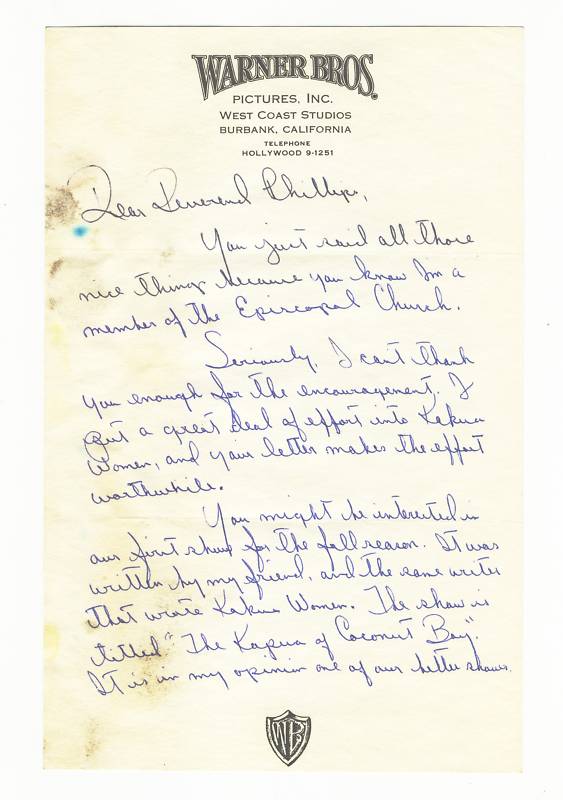 WARNER BROS.
PICTURES, INC.
WEST COAST STUDIOS
BURBANK, CALIFORNIA
TELEPHONE
HOLLYWOOD 9-1251
Dear Reverend Phillips,
You just said all those
nice things because you know I'm a
member of the Episcopal Church.
Seriously, I can't thank
you enough for the encouragement. I
put a great deal of effort into Kakua
Women, and your letter makes the effort
worthwhile.
You might be interested in
our first show for the fall season. It was
written by my friend, and the same writer
that wrote Kakua Women. The show is
titled "The Kapua of Coconut Bay".
It is in my opinion one of our better shows.
WB